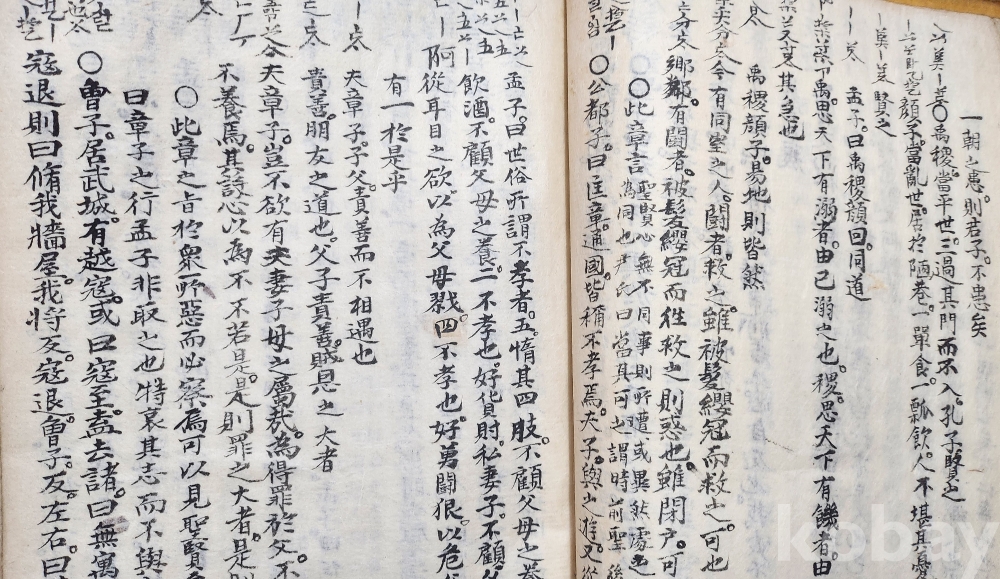 一朝之患則君子不患矣
○禹稷當平世三過其門而不入孔子賢之
顔子當亂世居於陋巷一單食一瓢飮人不堪其憂
賢之
孟子曰禹稷顔回同道
禹思天下有溺者由己溺之也稷思天下有饑者由
其急也
禹稷顔子易地則皆然
今有同室之人鬪者救之雖被髮纓冠而救之可也
鄕鄰有鬪者被髮纓冠而徃救之則惑也雖閉戶可
○此章言聖賢心無不同事則所遭或異然處之
為同也尹氏曰當其可之謂時前聖後
○公都子曰匡章通國皆稱不孝焉夫子與之遊又從
孟子曰世俗所謂不孝者五惰其四肢不顧父母之養
飮酒不顧父母之養二不孝也好貨財私妻子不顧父
從耳目之欲以為父母戮四不孝也好勇鬪狠以危
有一於是乎
夫章子子父責善而不相遇也
責善朋友之道也父子責善賊恩之大者
夫章子豈不欲有夫妻子母之屬哉為得罪於父不
不養焉其設心以為不若是是則罪之大者是則
○此章之旨於衆所惡而必察焉可以見聖賢
曰章子之行孟子非取之也特哀其志而不與
○曾子居武城有越寇或曰寇至盍去諸曰無寓
寇退則曰脩我牆屋我將反寇退曾子反左右曰
kobay